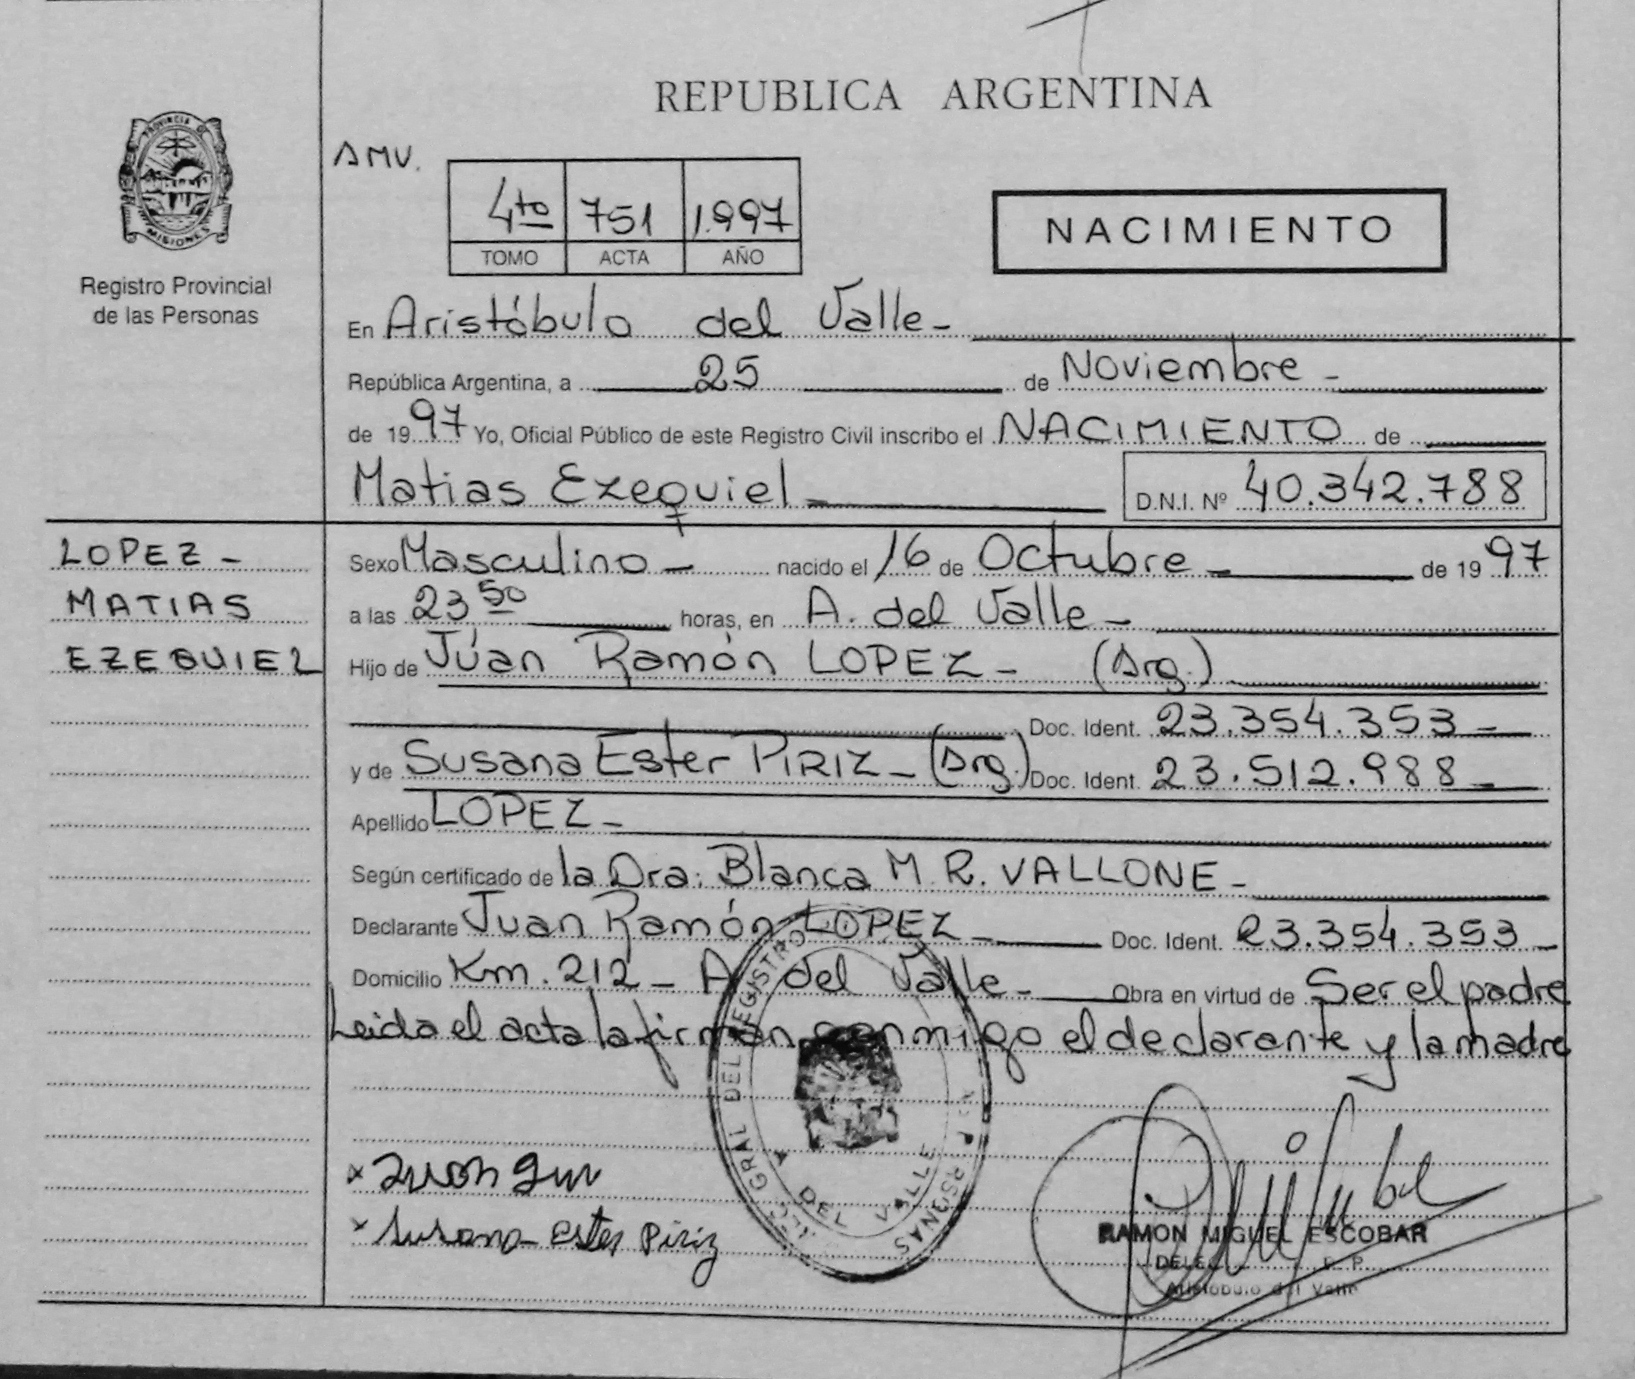 REPUBLICA ARGENTINA
PROVINCIA DE
MISIONES
Registro Provincial
de las Personas
AMV.
4to 751 1.997
TOMO ACTA AÑO
NACIMIENTO
En Aristóbulo del Valle -
República Argentina, a 25 de Noviembre -
de 1997 Yo, Oficial Público de este Registro Civil inscribo el NACIMIENTO de
Matias Ezequiel - D.N.I. Nº 40.342.788
LOPEZ -
MATIAS
EZEQUIEL
Sexo Masculino - nacido el 16 de Octubre - de 1997
a las 23 50 horas, en A. del Valle -
Hijo de Júan Ramón LOPEZ - (Arg.)
Doc. Ident. 23.354.353 -
y de Susana Ester PIRIZ - (Arg.) Doc. Ident. 23.512.988 -
Apellido LOPEZ -
Según certificado de la Dra: Blanca M. R. VALLONE -
Declarante Juan Ramón LOPEZ - Doc. Ident. 23.354.353 -
Domicilio Km. 212 - A. del Valle - Obra en virtud de Ser el padre
Leida el acta la firman conmigo el declarante y la madre
REGISTRO
DEL
GRAL
DEL VALLE
x Susana Ester Piriz
RAMON MIGUEL ESCOBAR
Aristobulo del Valle